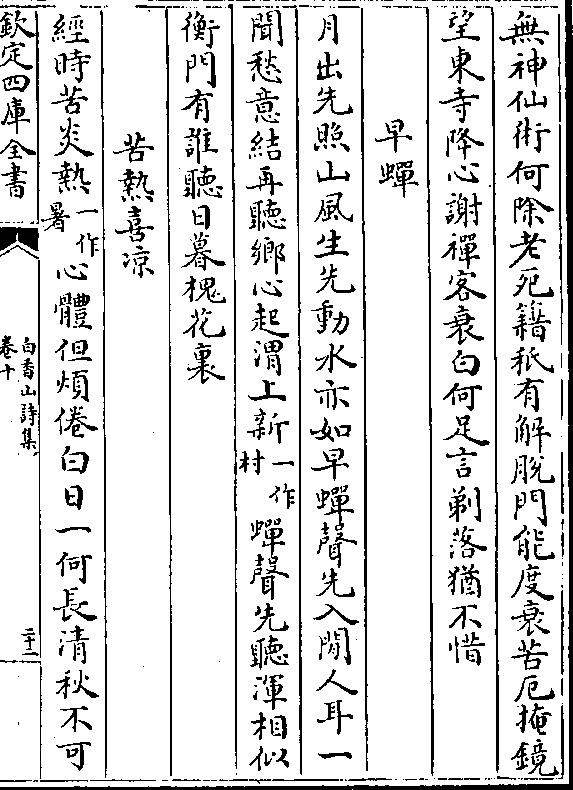 無神仙術何除老死籍秖有解脫門能度衰苦厄掩鏡
望東寺降心謝禪客衰白何足言剃落猶不惜
早蟬
月出先照山風生先動水亦如早蟬聲先入閒人耳一
聞愁意結再聽鄉心起渭上新一作村蟬聲先聽渾相似
衡門有誰聽日暮槐花裏
苦熱喜凉
經時苦炎熱一作暑心體但煩倦白日一何長清秋不可
欽定四庫全書
白香山詩集
卷十
二十二